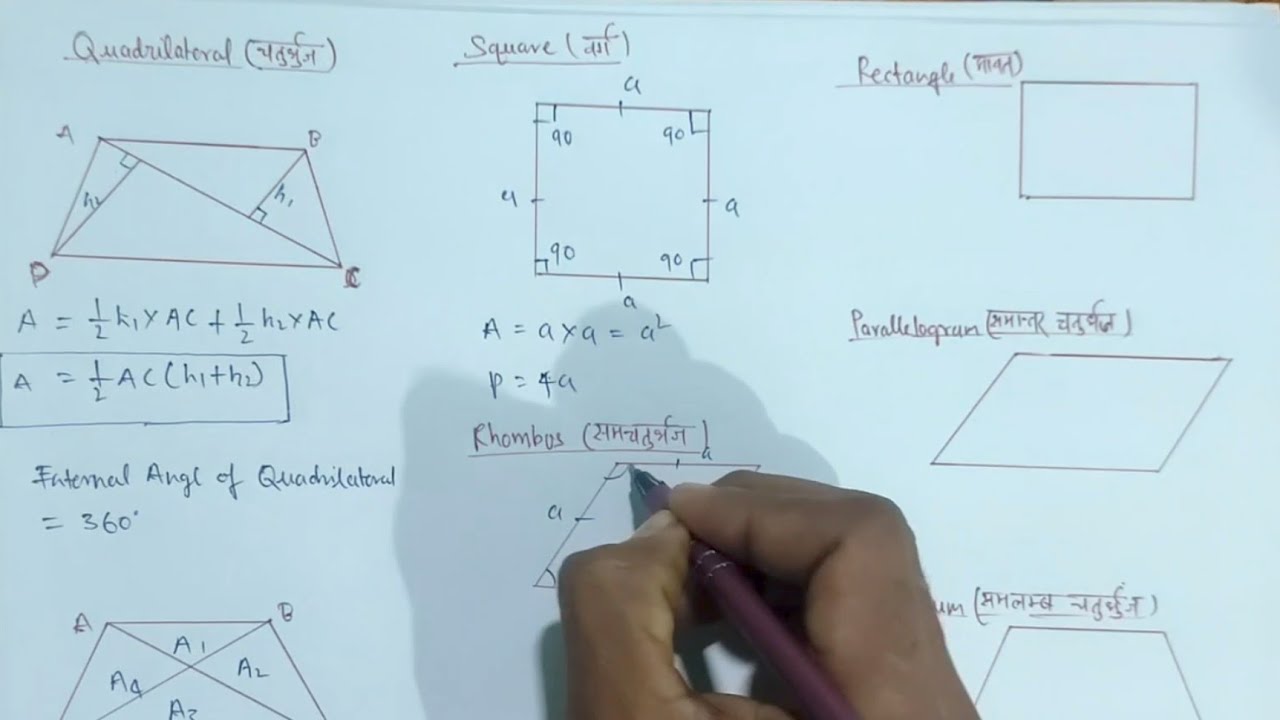 Quadrilateral (चतुर्भुज)
A
B
h₂
h₁
D
C
A = 1/2 h₁ × AC + 1/2 h₂ × AC
A = 1/2 AC (h₁+h₂)
Internal Angl of Quadrilateral
= 360°
A
B
A1
A2
A4
A3
Square (वर्ग)
a
90
90
a
a
90
90
a
A = a × a = a²
P = 4a
Rhombos (समचतुर्भुज)
a
a
Rectangle (आयत)
Parallelogram (समान्तर चतुर्भुज)
um (समलम्ब चतुर्भुज)